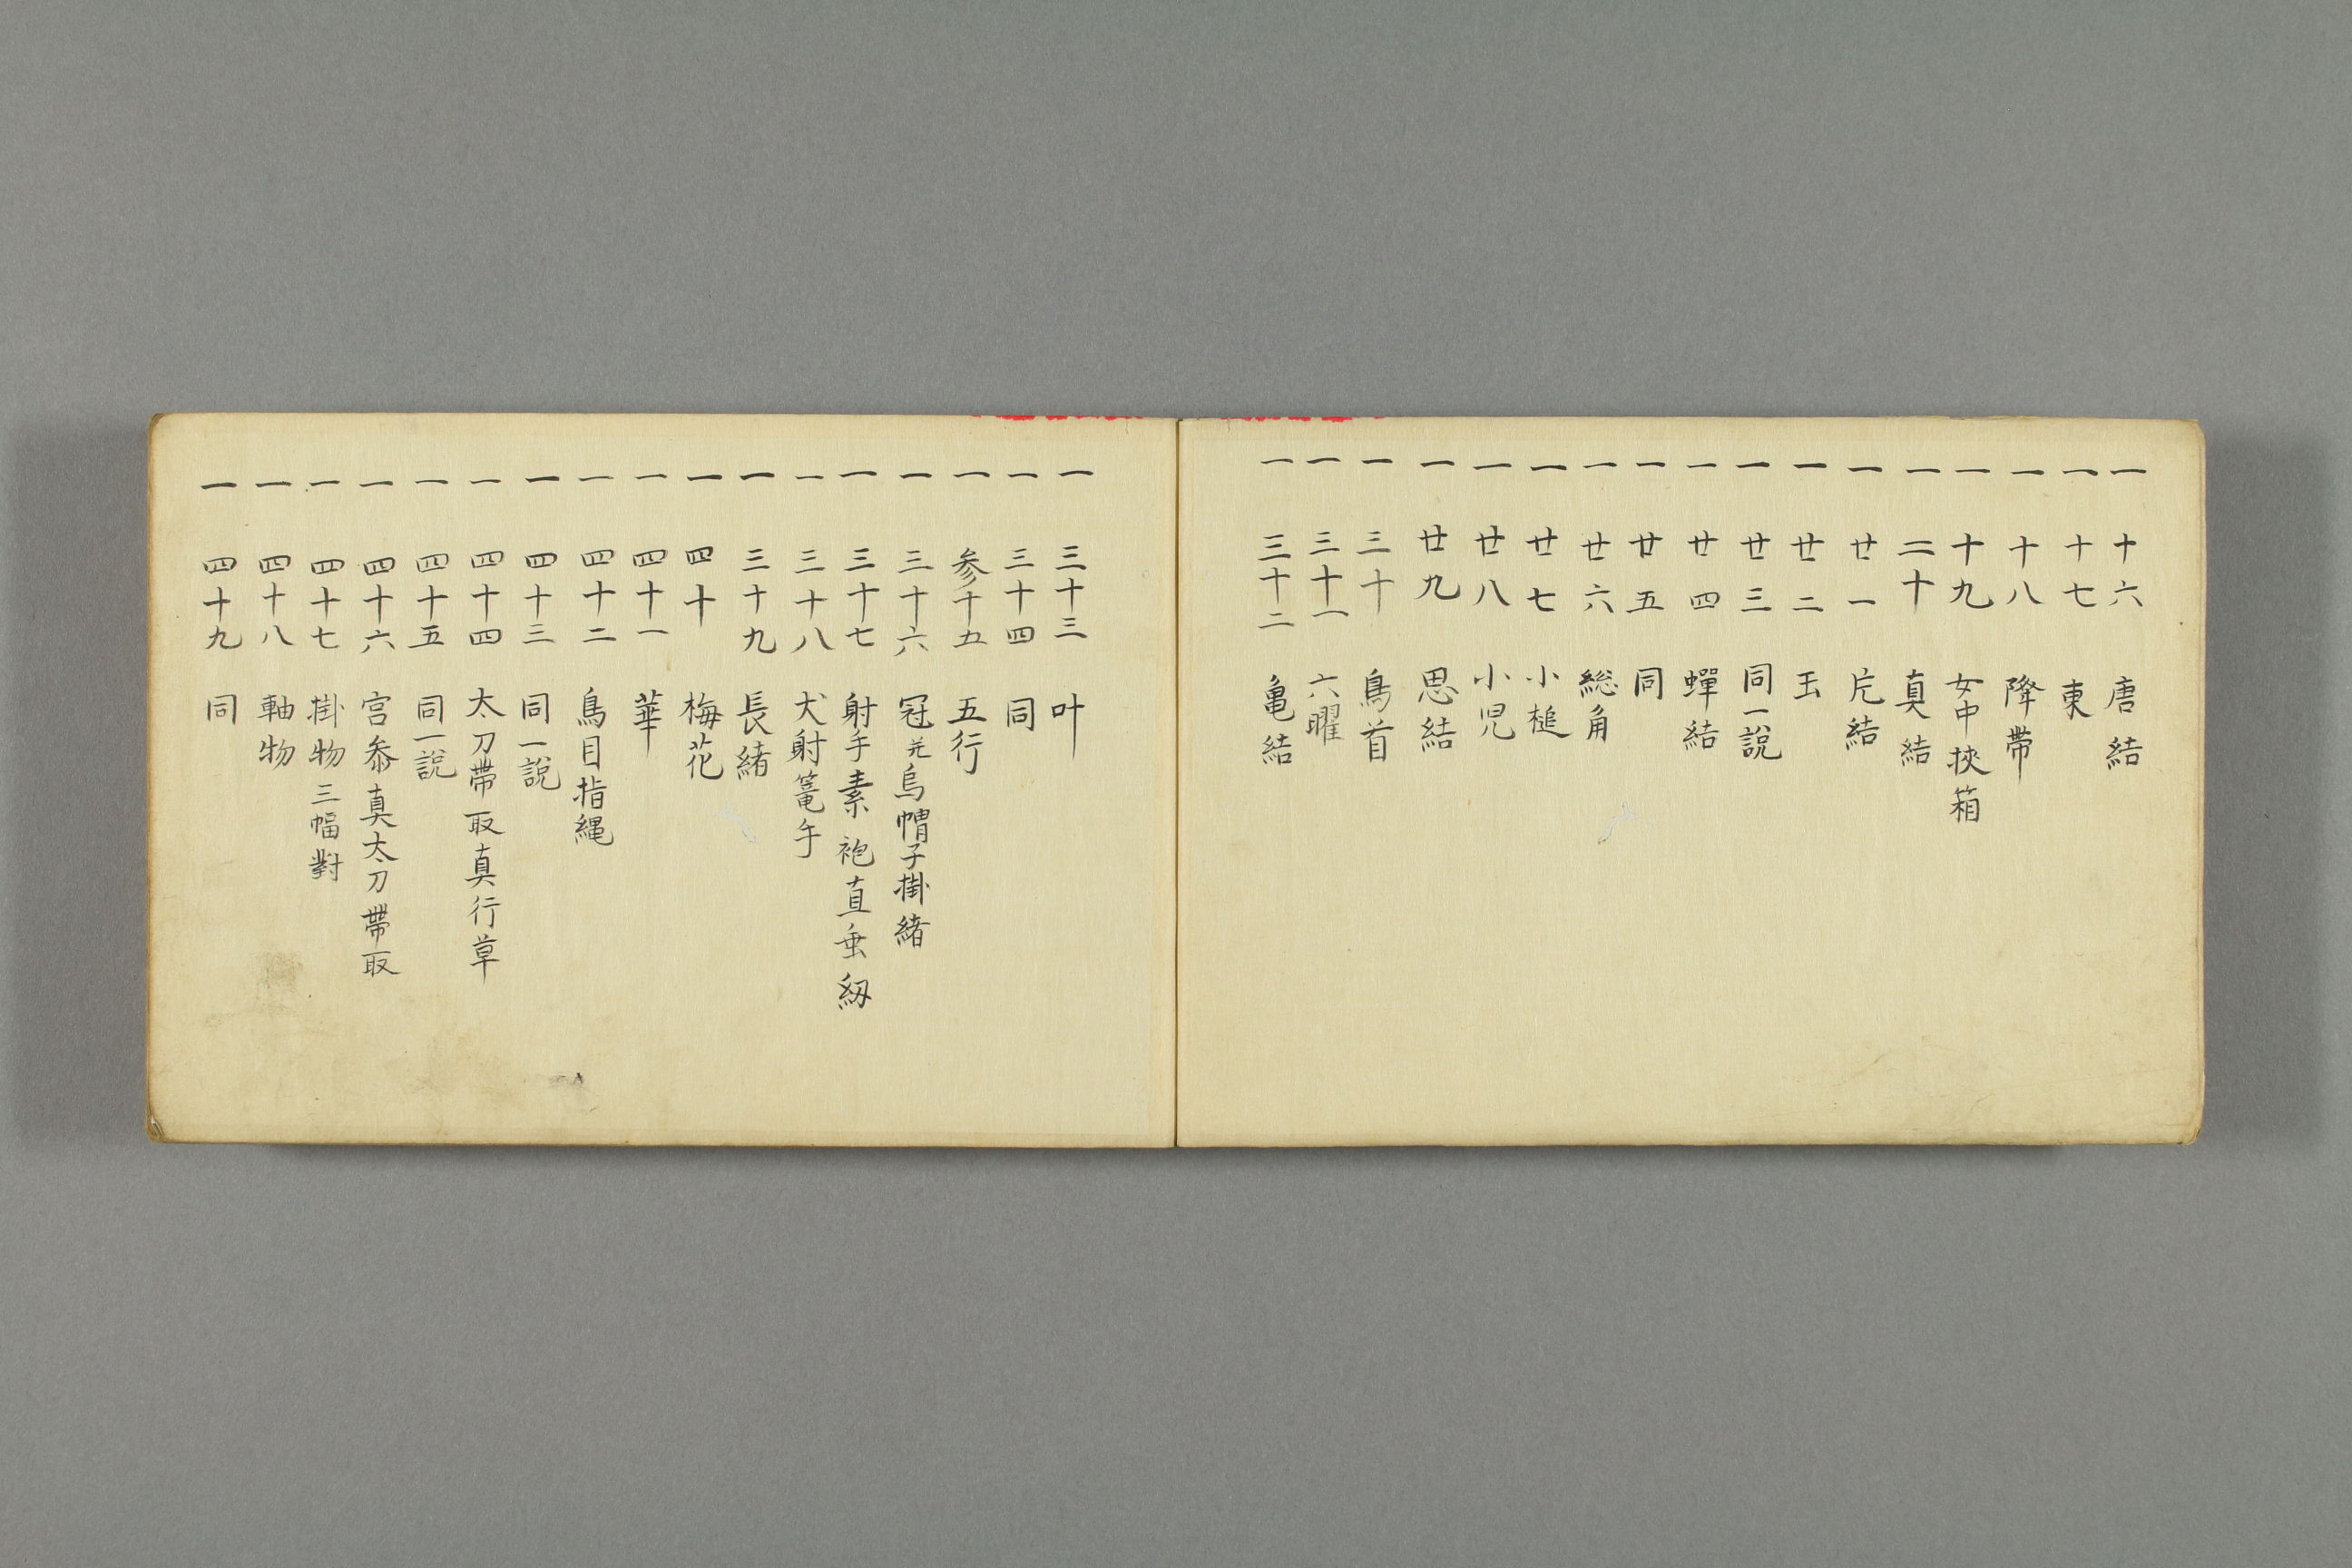 一 十六 唐結
一 十七 東
一 十八 降帯
一 十九 女中挾箱
一 二十 真結
一 廿一 片結
一 廿二 玉
一 廿三 同一説
一 廿四 蟬結
一 廿五 同
一 廿六 総角
一 廿七 小槌
一 廿八 小児
一 廿九 思結
一 三十 鳥首
一 三十一 六曜
一 三十二 亀結
一 三十三 叶
一 三十四 同
一 参十五 五行
一 三十六 冠并烏帽子掛緒
一 三十七 射手素袍直垂紐
一 三十八 犬射篭手
一 三十九 長緒
一 四十 梅花
一 四十一 華
一 四十二 鳥目指縄
一 四十三 同一説
一 四十四 太刀帯取真行草
一 四十五 同一説
一 四十六 宮参真太刀帯取
一 四十七 掛物三幅對
一 四十八 軸物
一 四十九 同